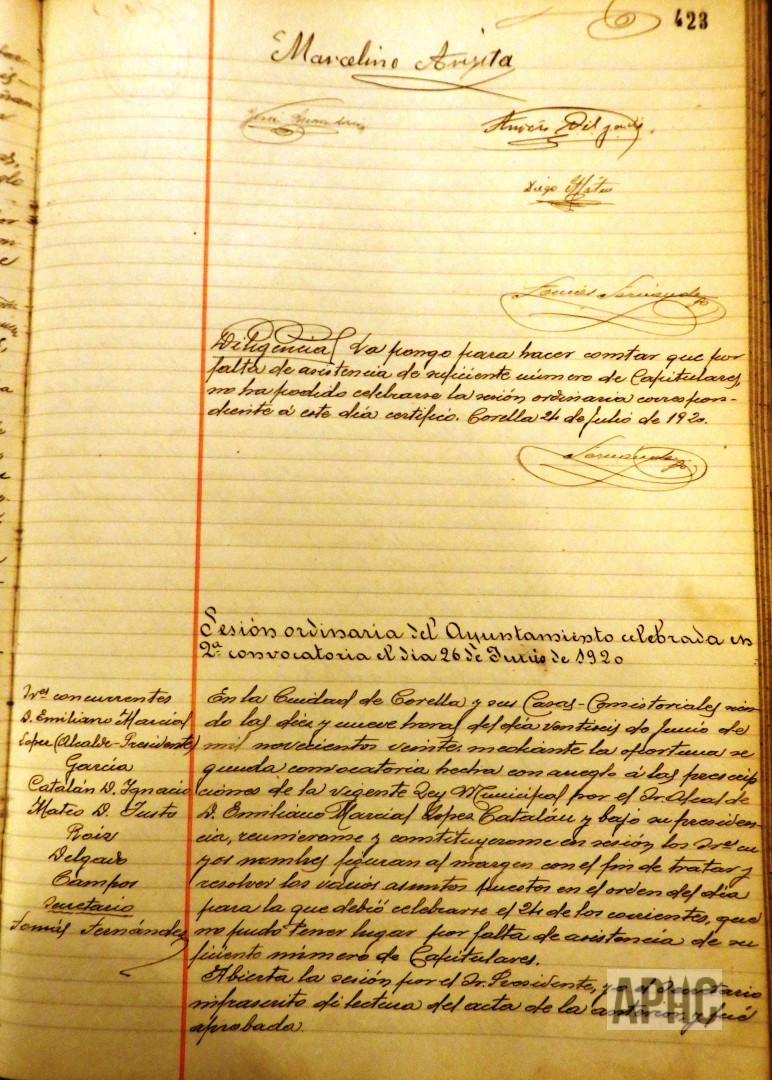 423
Marcelino Arigita
Delgado
Diego Mateo
Tomás Fernández
Diligencia La pongo para hacer constar que por
falta de asistencia de suficiente número de Capitulares,
no ha podido celebrarse la sesión ordinaria correspon-
diente á este día certifico. Corella 24 de Julio de 1920.
Fernández
Sesión ordinaria del Ayuntamiento celebrada en
2ª convocatoria el día 26 de Junio de 1920
Sres concurrentes
D. Emiliano Marcial
Lopez (Alcalde-Presidente)
García
Catalán D. Ignacio
Mateo D. Justo
Roiz
Delgado
Campos
Secretario
Tomás Fernández
En la Cuidad de Corella y sus Casas-Consistoriales sien-
do las diez y nueve horas del día ventiseis de Junio de
mil novecientos veinte, mediante la oportuna se
gunda convocatoria hecha con arreglo á las prescrip
ciones de la vigente Ley Municipal por el Sr. Alcalde
D. Emiliano Marcial Lopez Catalán y bajo su presiden-
cia, reunierome y constituyerome en sesión los Sres cu
yos nombres figuran al margen con el fin de tratar y
resolver los varios asuntos puestos en el orden del día
para la que debió celebrarse el 24 de los corrientes, que
no pudo tener lugar por falta de asistencia de su
ficiente número de Capitulares.
Abierta la sesión por el Sr. Presidente, yo el Secretario
infrascrito di lectura del acta de la anterior y fué
aprobada.
APHC